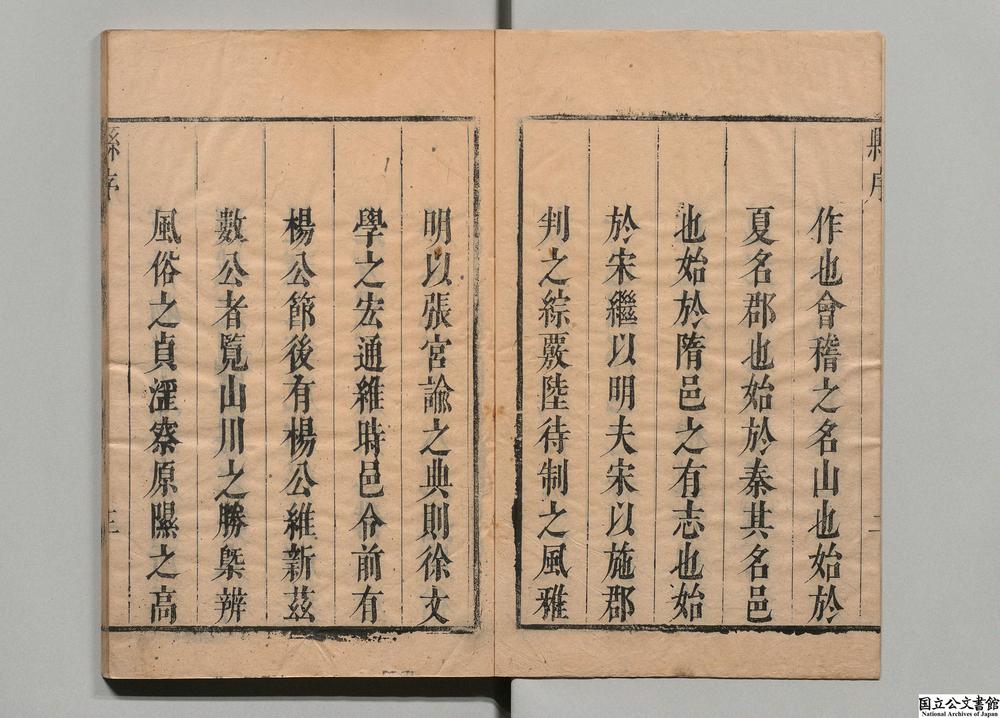 作也會稽之名山也始於
夏名郡也始於秦其名邑
也始於隋邑之有志也始
於宋繼以明夫宋以施郡
判之綜覈陸待制之風雅
明以張宮諭之典則徐文
學之宏通維時邑令前有
楊公節後有楊公維新茲
數公者覧山川之勝槩辨
風俗之貞淫察原隰之高
縣序
三
国立公文書館
National Archives of Japan